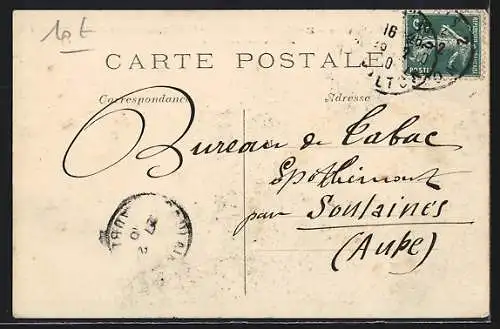 10 f
CARTE POSTALE
Correspondance
Adresse
Bureau de Tabac
Epothémont
par Soulaines
(Aube)